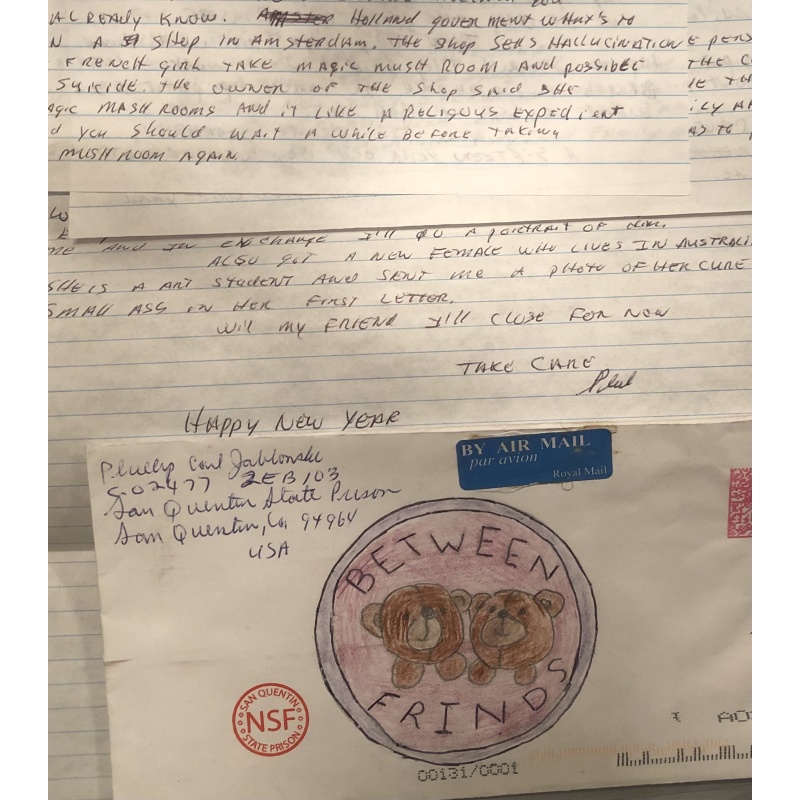 YOU
ALREADY KNOW. HOLLAND GOVERMENT WHAT'S TO
N A SHOP IN AMSTERDAM. THE SHOP SELLS HALLUCINATION
E PENS
FRENCH GIRL TAKE MAGIC MUSH ROOM AND POSSIBLE
THE C
SUICIDE. THE OWNER OF THE SHOP SAID SHE
LE TH
AGIC MASH ROOMS AND IT LIKE A RELIGOUS EXPEDIENT
ILY AF
D YOU SHOULD WAIT A WHILE BEFORE TAKING
AS TO
MUSH ROOM AGAIN.
ME AND IN EXCHANGE I'LL DO A PORTRAIT OF
ALSO GOT A NEW FEMALE WHO LIVES IN AUSTRALI
SHE IS A ART STUDENT AND SENT ME A PHOTO OF HER CURE
SMALL ASS IN HER FIRST LETTER.
WILL MY FRIEND I'LL CLOSE FOR NOW
TAKE CARE
Phil
HAPPY NEW YEAR
Phillip Carl Jablonski
C-02477 2EB103
San Quentin State Prison
San Quentin, Ca. 94964
USA
BY AIR MAIL
par avion
Royal Mail
BETWEEN
FRINDS
SAN QUENTIN
NSF
STATE PRISON
00131/0001